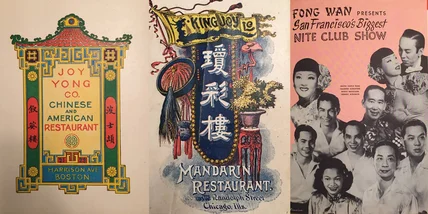 JOY
YONG
CO.
CHINESE
AND
AMERICAN
RESTAURANT
波士頓
HARRISON AVE
BOSTON
KING JOY LO
瓊彩樓
MANDARIN
RESTAURANT.
Randolph Street
Chicago, Ills.
FONG WAN PRESENTS
San Francisco's Biggest
NITE CLUB SHOW